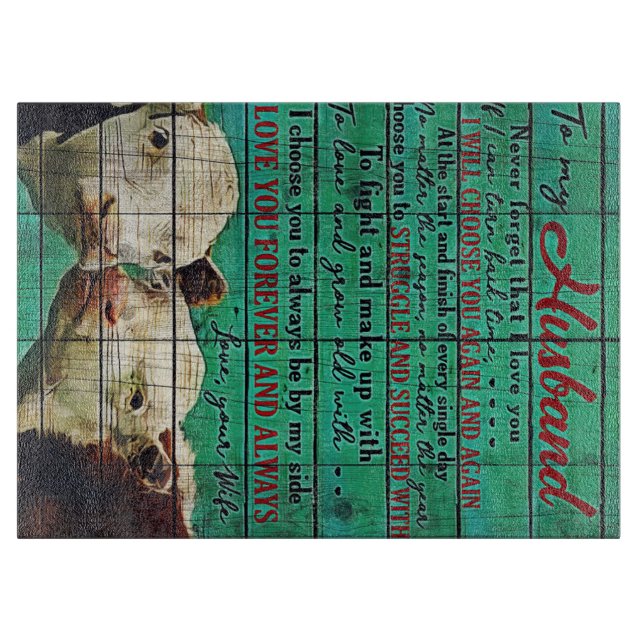 To my Husband
Never forget that I love you
If I can turn back time,
I WILL CHOOSE YOU AGAIN AND AGAIN
At the start and finish of every single day
No matter the season, no matter the year
hoose you to STRUGGLE AND SUCCEED WITH
To fight and make up with
To love and grow old with
I choose you to always be by my side
LOVE YOU FOREVER AND ALWAYS
Love, your Wife